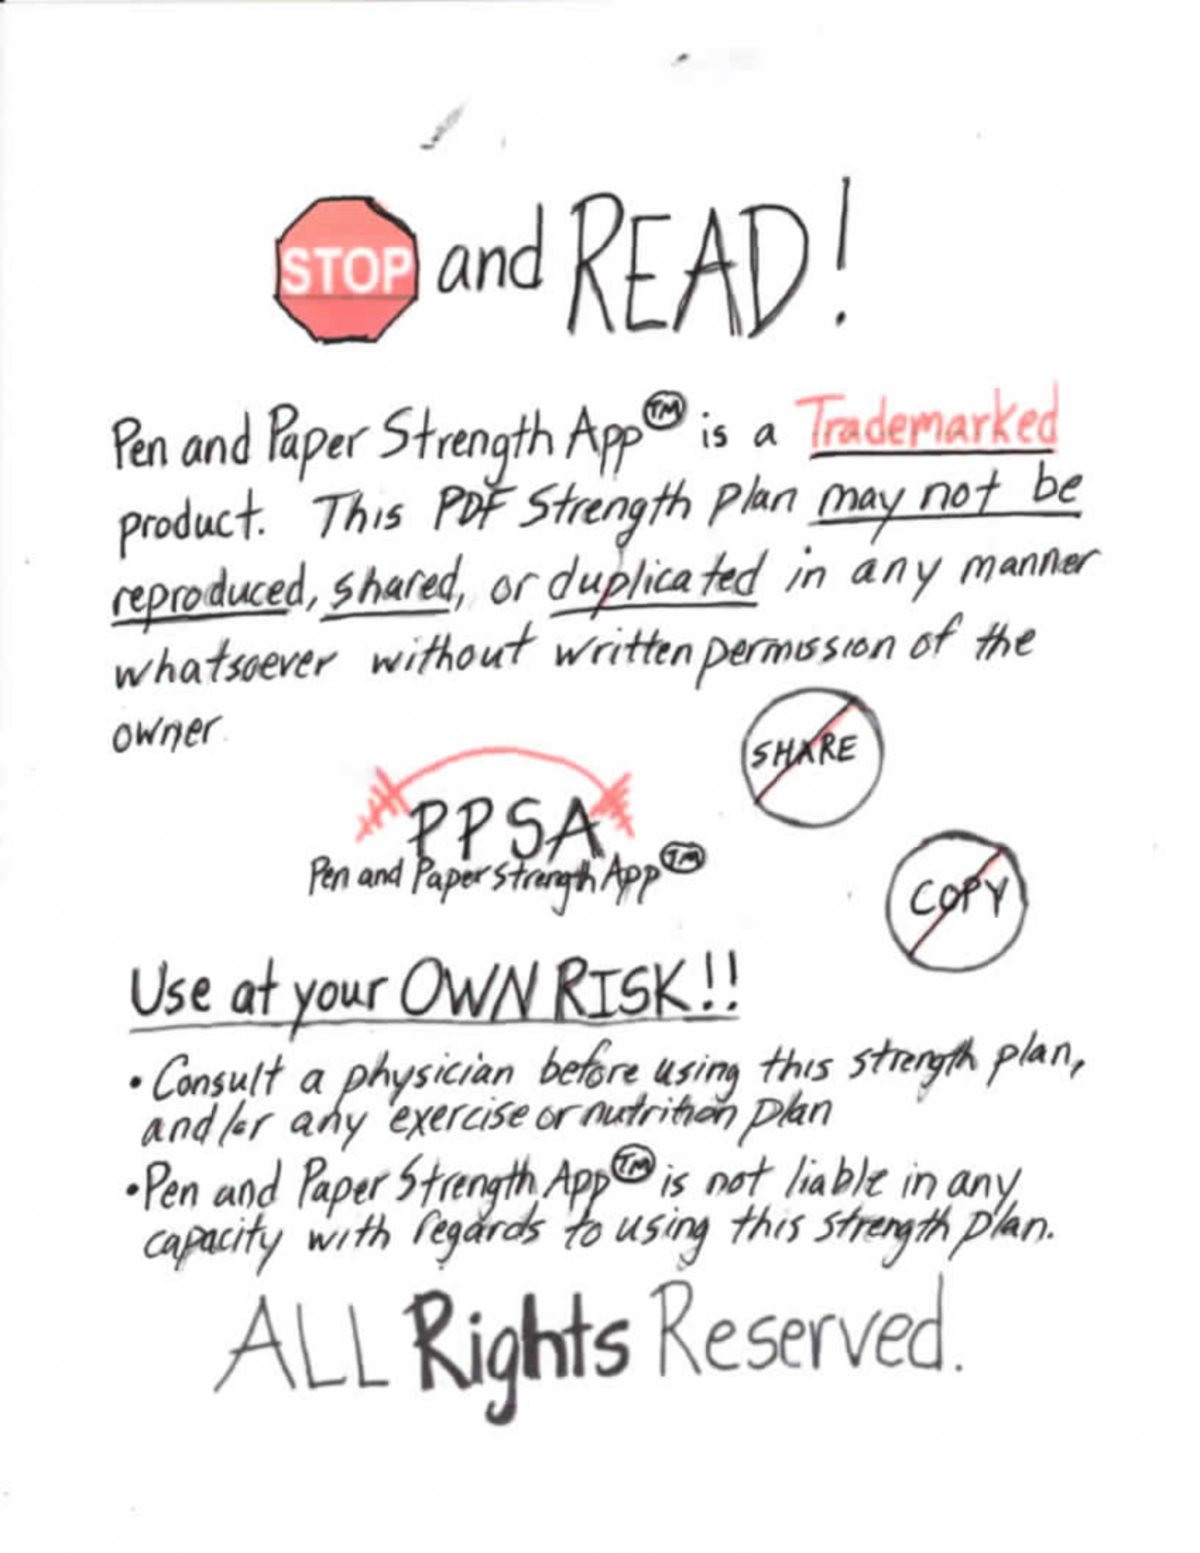 STOP and READ!
Pen and Paper Strength App™ is a Trademarked
product. This PDF Strength Plan may not be
reproduced, shared, or duplicated in any manner
whatsoever without written permission of the
owner.
SHARE
PPSA
Pen and Paper Strength App™
COPY
Use at your OWN RISK!!
• Consult a physician before using this strength plan,
and/or any exercise or nutrition plan
• Pen and Paper Strength App™ is not liable in any
capacity with regards to using this strength plan.
ALL Rights Reserved.